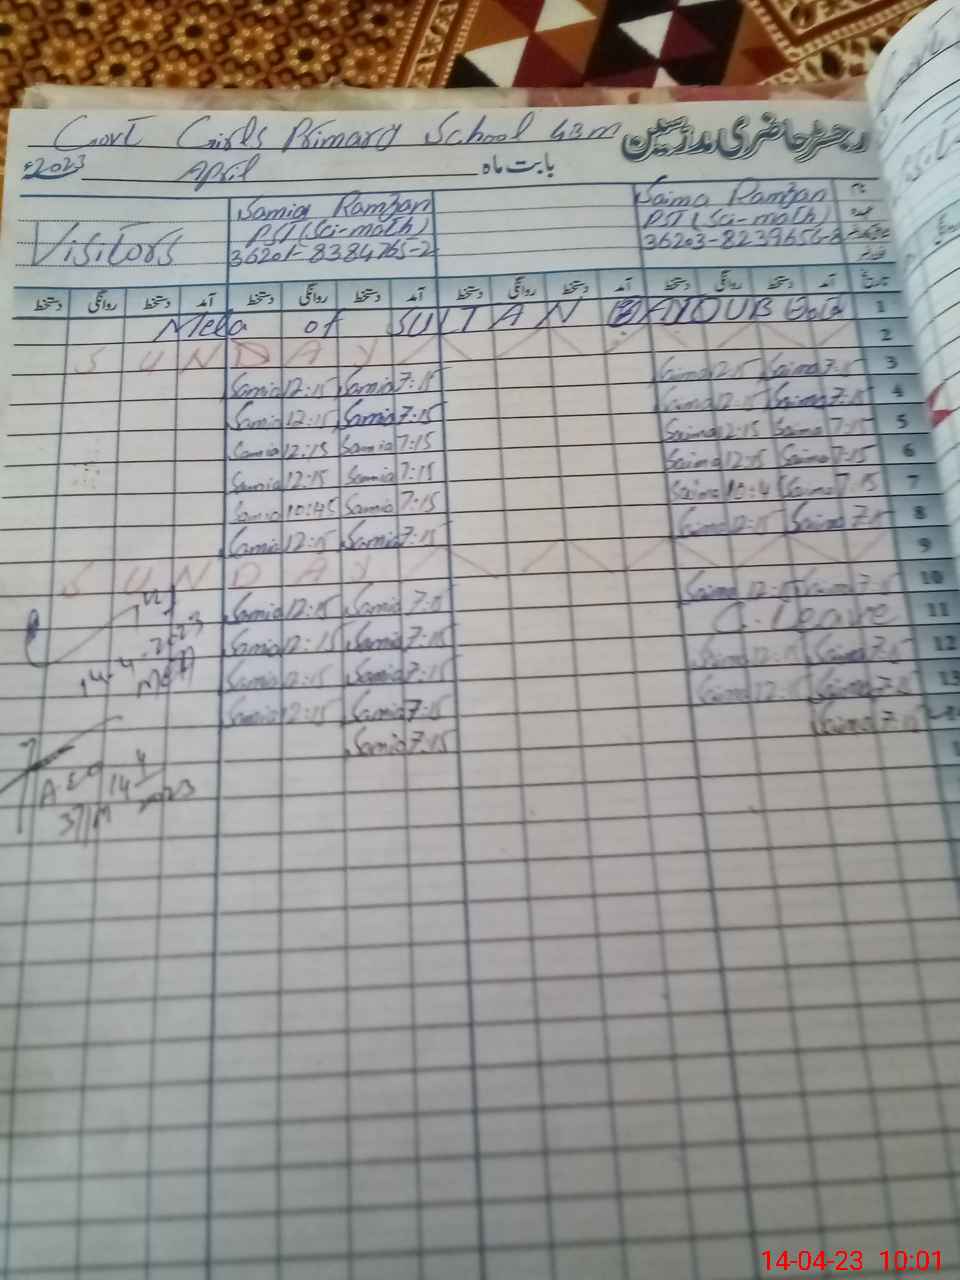 Govt Girls Primary School 43M رجسٹر حاضری مدرسین
2023ء April بابت ماہ
Visitors
Samia Ramzan
PST (Sci-math)
Saima Ramzan
PST (Sci-math)
نام
عہدہ
دستخط روانگی دستخط آمد دستخط روانگی دستخط آمد دستخط روانگی دستخط آمد دستخط روانگی دستخط آمد تاریخ
Mela of SULTAN AYOUB 1
SUNDAY 2
Samia 12:15 Samia 7:15 Saima 12:15 Saima 7:15 3
Samia 12:15 Samia 7:15 Saima 12:15 Saima 7:15 4
Samia 12:15 Samia 7:15 Saima 12:15 Saima 7:15 5
Samia 12:15 Samia 7:15 Saima 12:15 Saima 7:15 6
Samia 10:45 Samia 7:15 Saima 10:45 Saima 7:15 7
Samia 12:15 Samia 7:15 Saima 12:15 Saima 7:15 8
SUNDAY 9
Samia 12:15 Samia 7:15 Saima 12:15 Saima 7:15 10
Samia 12:15 Samia 7:15 C. Leave 11
Samia 12:15 Samia 7:15 Saima 12:15 Saima 7:15 12
Samia 12:15 Samia 7:15 Saima 12:15 Saima 7:15 13
Samia 7:15 Saima 7:15 14
14-4-2023
MEA
AEO 14/4/2023
37/M
14-04-23 10:01